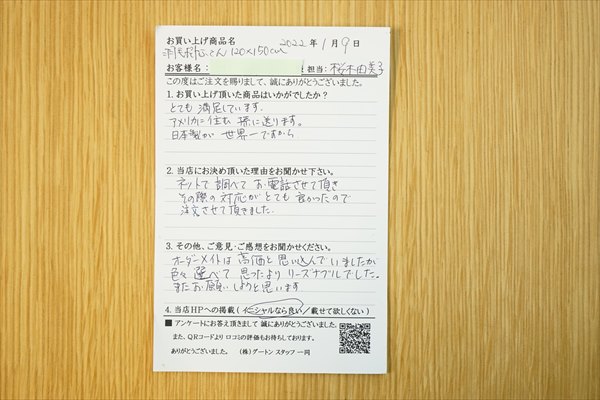 お買い上げ商品名 2022年 1月 9日
羽毛ふとん 120×150cm
お客様名: 担当: 桜木由美子
この度はご注文を賜りまして、誠にありがとうございました。
1. お買い上げ頂いた商品はいかがでしたか?
とても 満足しています.
アメリカに住む 孫に送ります。
日本製が 世界一ですから
2. 当店にお決め頂いた理由をお聞かせ下さい。
ネットで 調べて お電話させて頂き
その際の 対応がとても 良かったので
注文させて頂きました.
3. その他、ご意見・ご感想をお聞かせください。
オーダーメイドは 高価と 思い込んでいましたが
色々 選べて 思ったより リーズナブルでした。
またお願いしようと思います
4. 当店HPへの掲載(イニシャルなら良い/載せて欲しくない)
■ アンケートにお答え頂きまして 誠にありがとうございました。
また、QRコードより 口コミの評価もお待ちしております。
ありがとうございました。 (株)ダートン スタッフ 一同